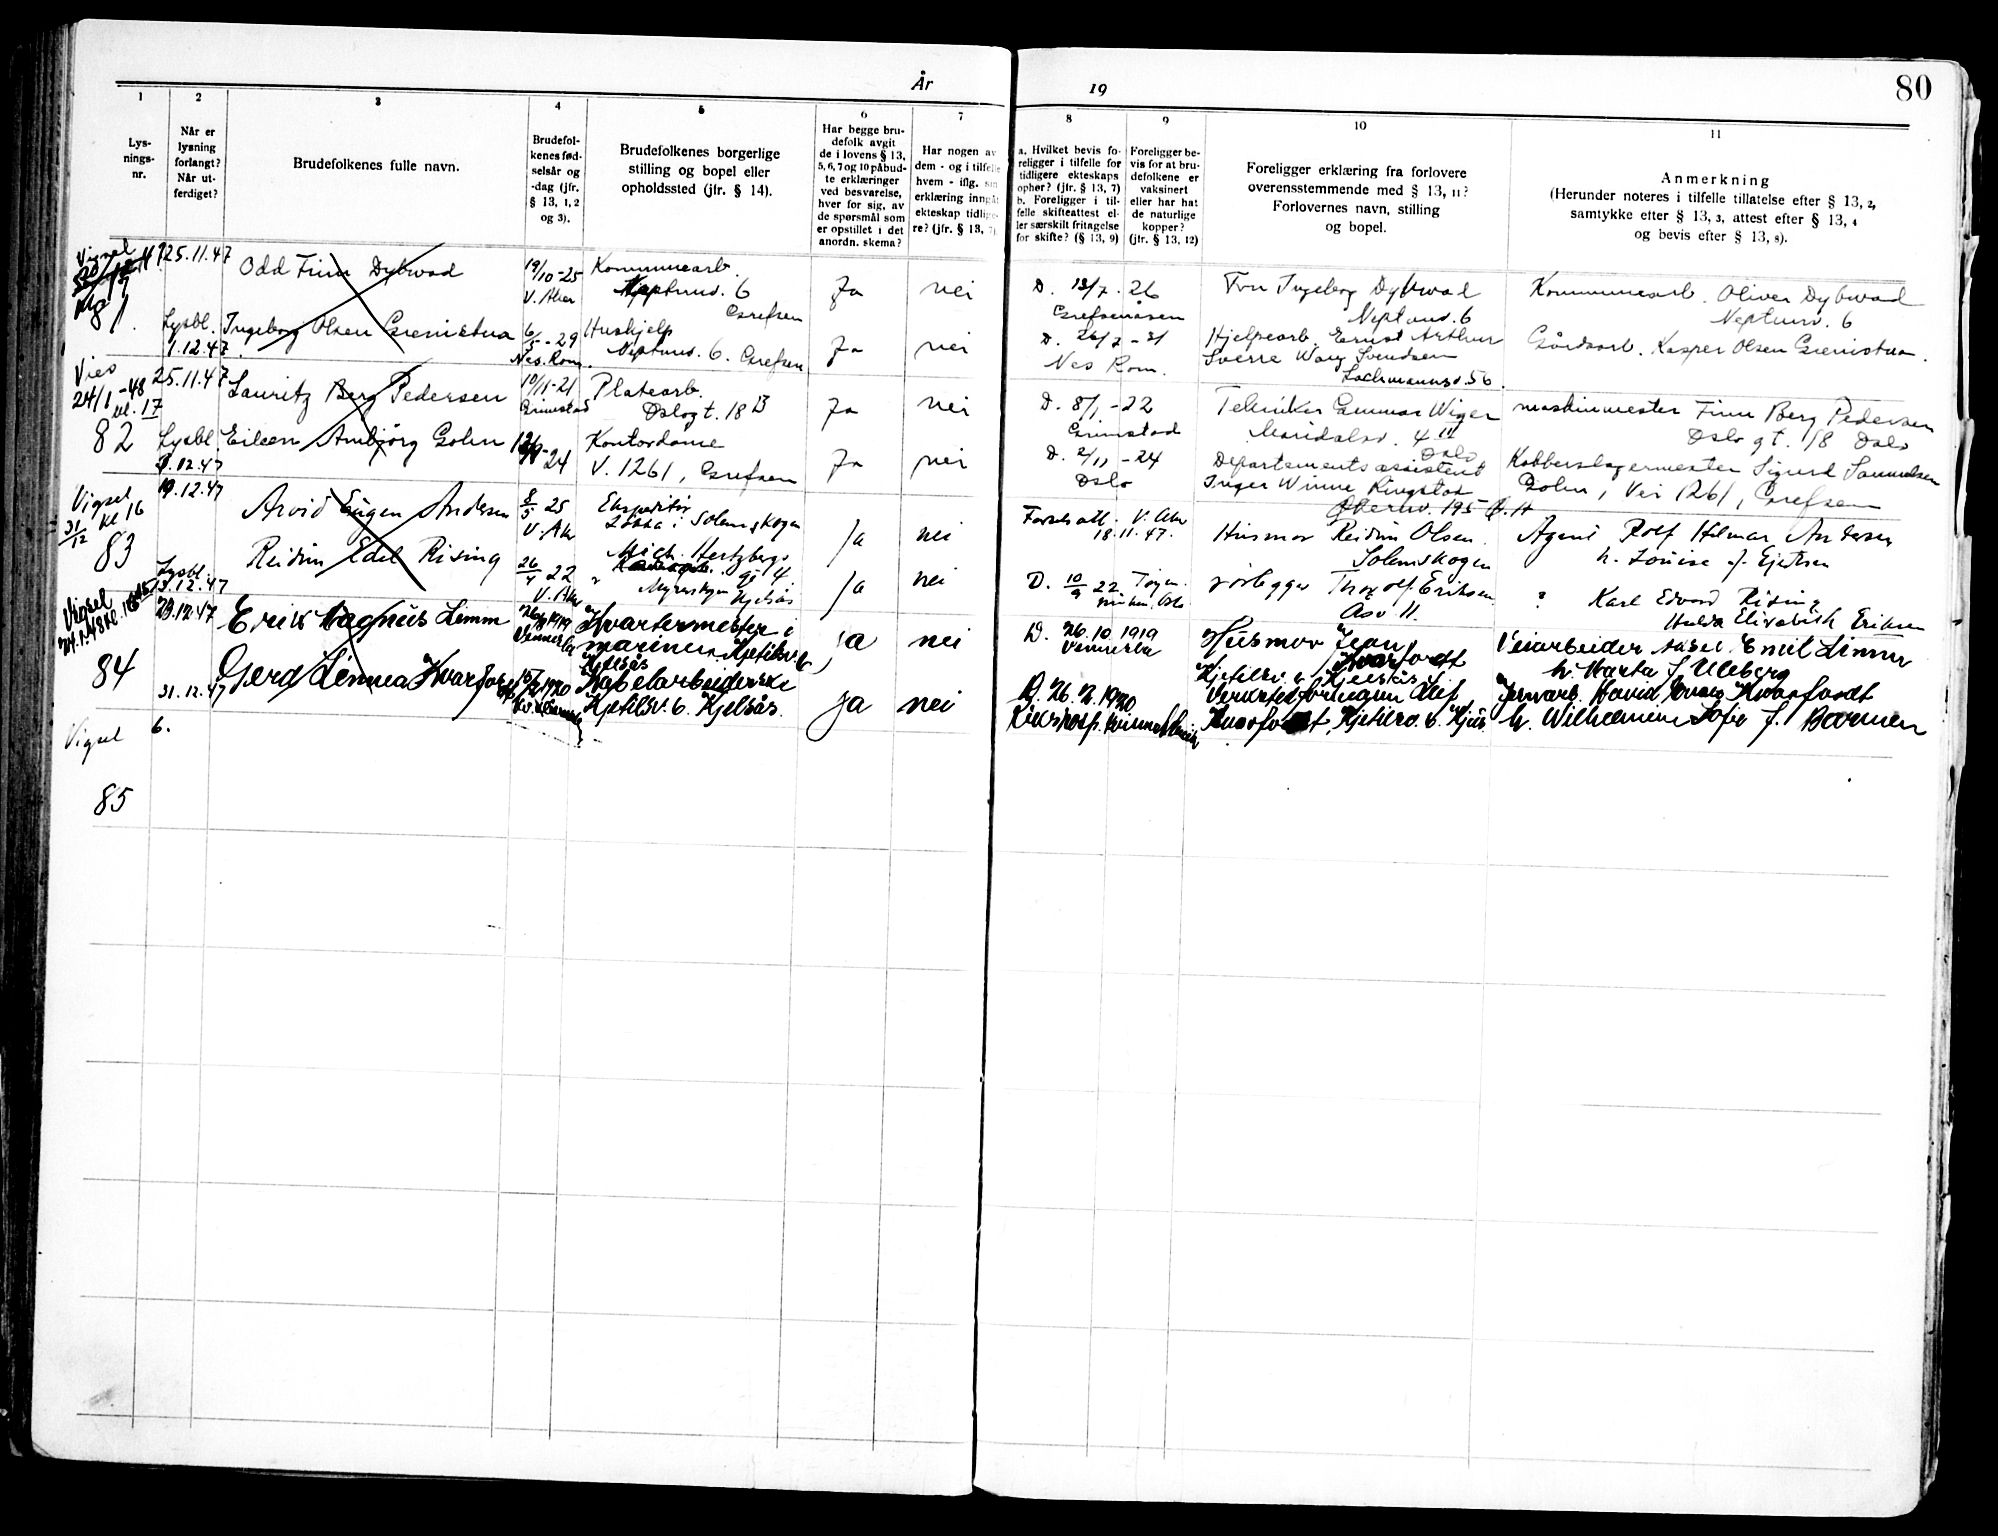 År
19
80
1
Lys-
nings-
nr.
2
Når er
lysning
forlangt?
Når ut-
ferdiget?
3
Brudefolkenes fulle navn.
4
Brudefol-
kenes fød-
selsår og
-dag (jfr.
§ 13, 1, 2
og 3).
5
Brudefolkenes borgerlige
stilling og bopel eller
opholdssted (jfr. § 14).
6
Har begge bru-
defolk avgit
de i lovens § 13,
5, 6, 7 og 10 påbud-
te erklæringer
ved besvarelse,
hver for sig, av
de spørsmål som
er opstillet i det
anordn. skema?
7
Har nogen av
dem - og i tilfelle
hvem - iflg. sin
erklæring inngåt
ekteskap tidlige-
re? (jfr. § 13, 7)
8
a. Hvilket bevis fo-
religger i tilfelle for
tidligere ekteskaps
ophør? (jfr. § 13, 7)
b. Foreligger i til-
felle skifteattest el-
ler særskilt fritagelse
for skifte? (§ 13, 9)
9
Foreligger be-
vis for at bru-
defolkene er
vaksinert
eller har hat
de naturlige
kopper?
(jfr. § 13, 12)
10
Foreligger erklæring fra forlovere
overensstemmende med § 13, 11?
Forlovernes navn, stilling
og bopel.
11
Anmerkning
(Herunder noteres i tilfelle tillatelse efter § 13, 2,
samtykke efter § 13, 3, attest efter § 13, 4
og bevis efter § 13, 8).
Vigsel
25.11.47
Odd Finn Dybwad
19/10-25
V. Aker
Kommunearb.
Neptunv. 6
Grefsen
Ja
nei
D. 13/7 . 26
Grefsenåsen
Fru Ingeborg Dybwad
Neptunv. 6
Kommunearb. Oliver Dybwad
Neptunv. 6
Lysbl.
1.12.47
Ingeborg Olsen Grenistua
6/5-29
Nes. Rom.
Hushjelp
Neptunv. 6. Grefsen
Ja
nei
D. 26/7 - 31
Nes Rom.
Hjelpearb. Ernst Arthur
Sverre Wang Svendsen
Lachmannsv. 56.
Gårdsarb. Kasper Olsen Grenistua.
Vies
24/1-48
kl. 17
82
25.11.47
Lauritz Berg Pedersen
10/11-21
Grimstad
Platearb.
Oslogt. 18 B
Ja
nei
D. 8/1 - 22
Grimstad
Tekniker Gunnar Wiger
Maridalsv. 4 II
Oslo
maskinmester Finn Berg Pedersen
Oslo gt. 18 Oslo
Lysbl
.12.47
Eileen Ambjörg Golin
24
Kontordame
V. 1261, Grefsen
Ja
nei
D. 2/11 - 24
Oslo
Departementsassistent
Inger Winne Ringstad
Kobberslagermester Sigurd Samuelsen
Golin, Vei 1261, Grefsen
Vigsel
31/12 kl 16
83
19.12.47
Arvid Eugen Andersen
8/5 25
V. Akr
Ekspeditør
Solemskogen
Ja
nei
Fødselsatt. V. Akr
18.11.47.
Husmor Reidun Olsen
Solemskogen
Agent Rolf Hilmar Andersen
h. Louise f. Ejertsen
Lysbl.
13.12.47
Reidun Edel Rising
26/4 22
V. Akr
Mich. Hertzbergs
Myrerskogen Kjelsås
Ja
nei
D. 10/9 22. Tøyen
Thorolf Eriksen
Åsv. 11.
? Karl Edvard Rising
Hulda Elisabeth Eriksen
Vigsel
84
29.12.47
Erik Magnus Limm
Vennesla
Kvartermester i
marinen Kjetilsv. 6
Kjelsås
ja
nei
D. 26.10.1919
Vennesla
Husmor Jean
Kvarfordt
Kjetilsv. 6 Kjelsås
Veiarbeider Emil Limm
h. Marta f. Uleberg
31.12.47
Gerd Linnea Kvarfordt
Kabelarbeiderske
Kjetilsv. 6. Kjelsås.
ja
nei
D. 26.2.1920
Kvarfordt, Kjetilsv. 6. Kjelsås
h. Wilhelmine Sofie f. Barmen
Vigsel
6.
85